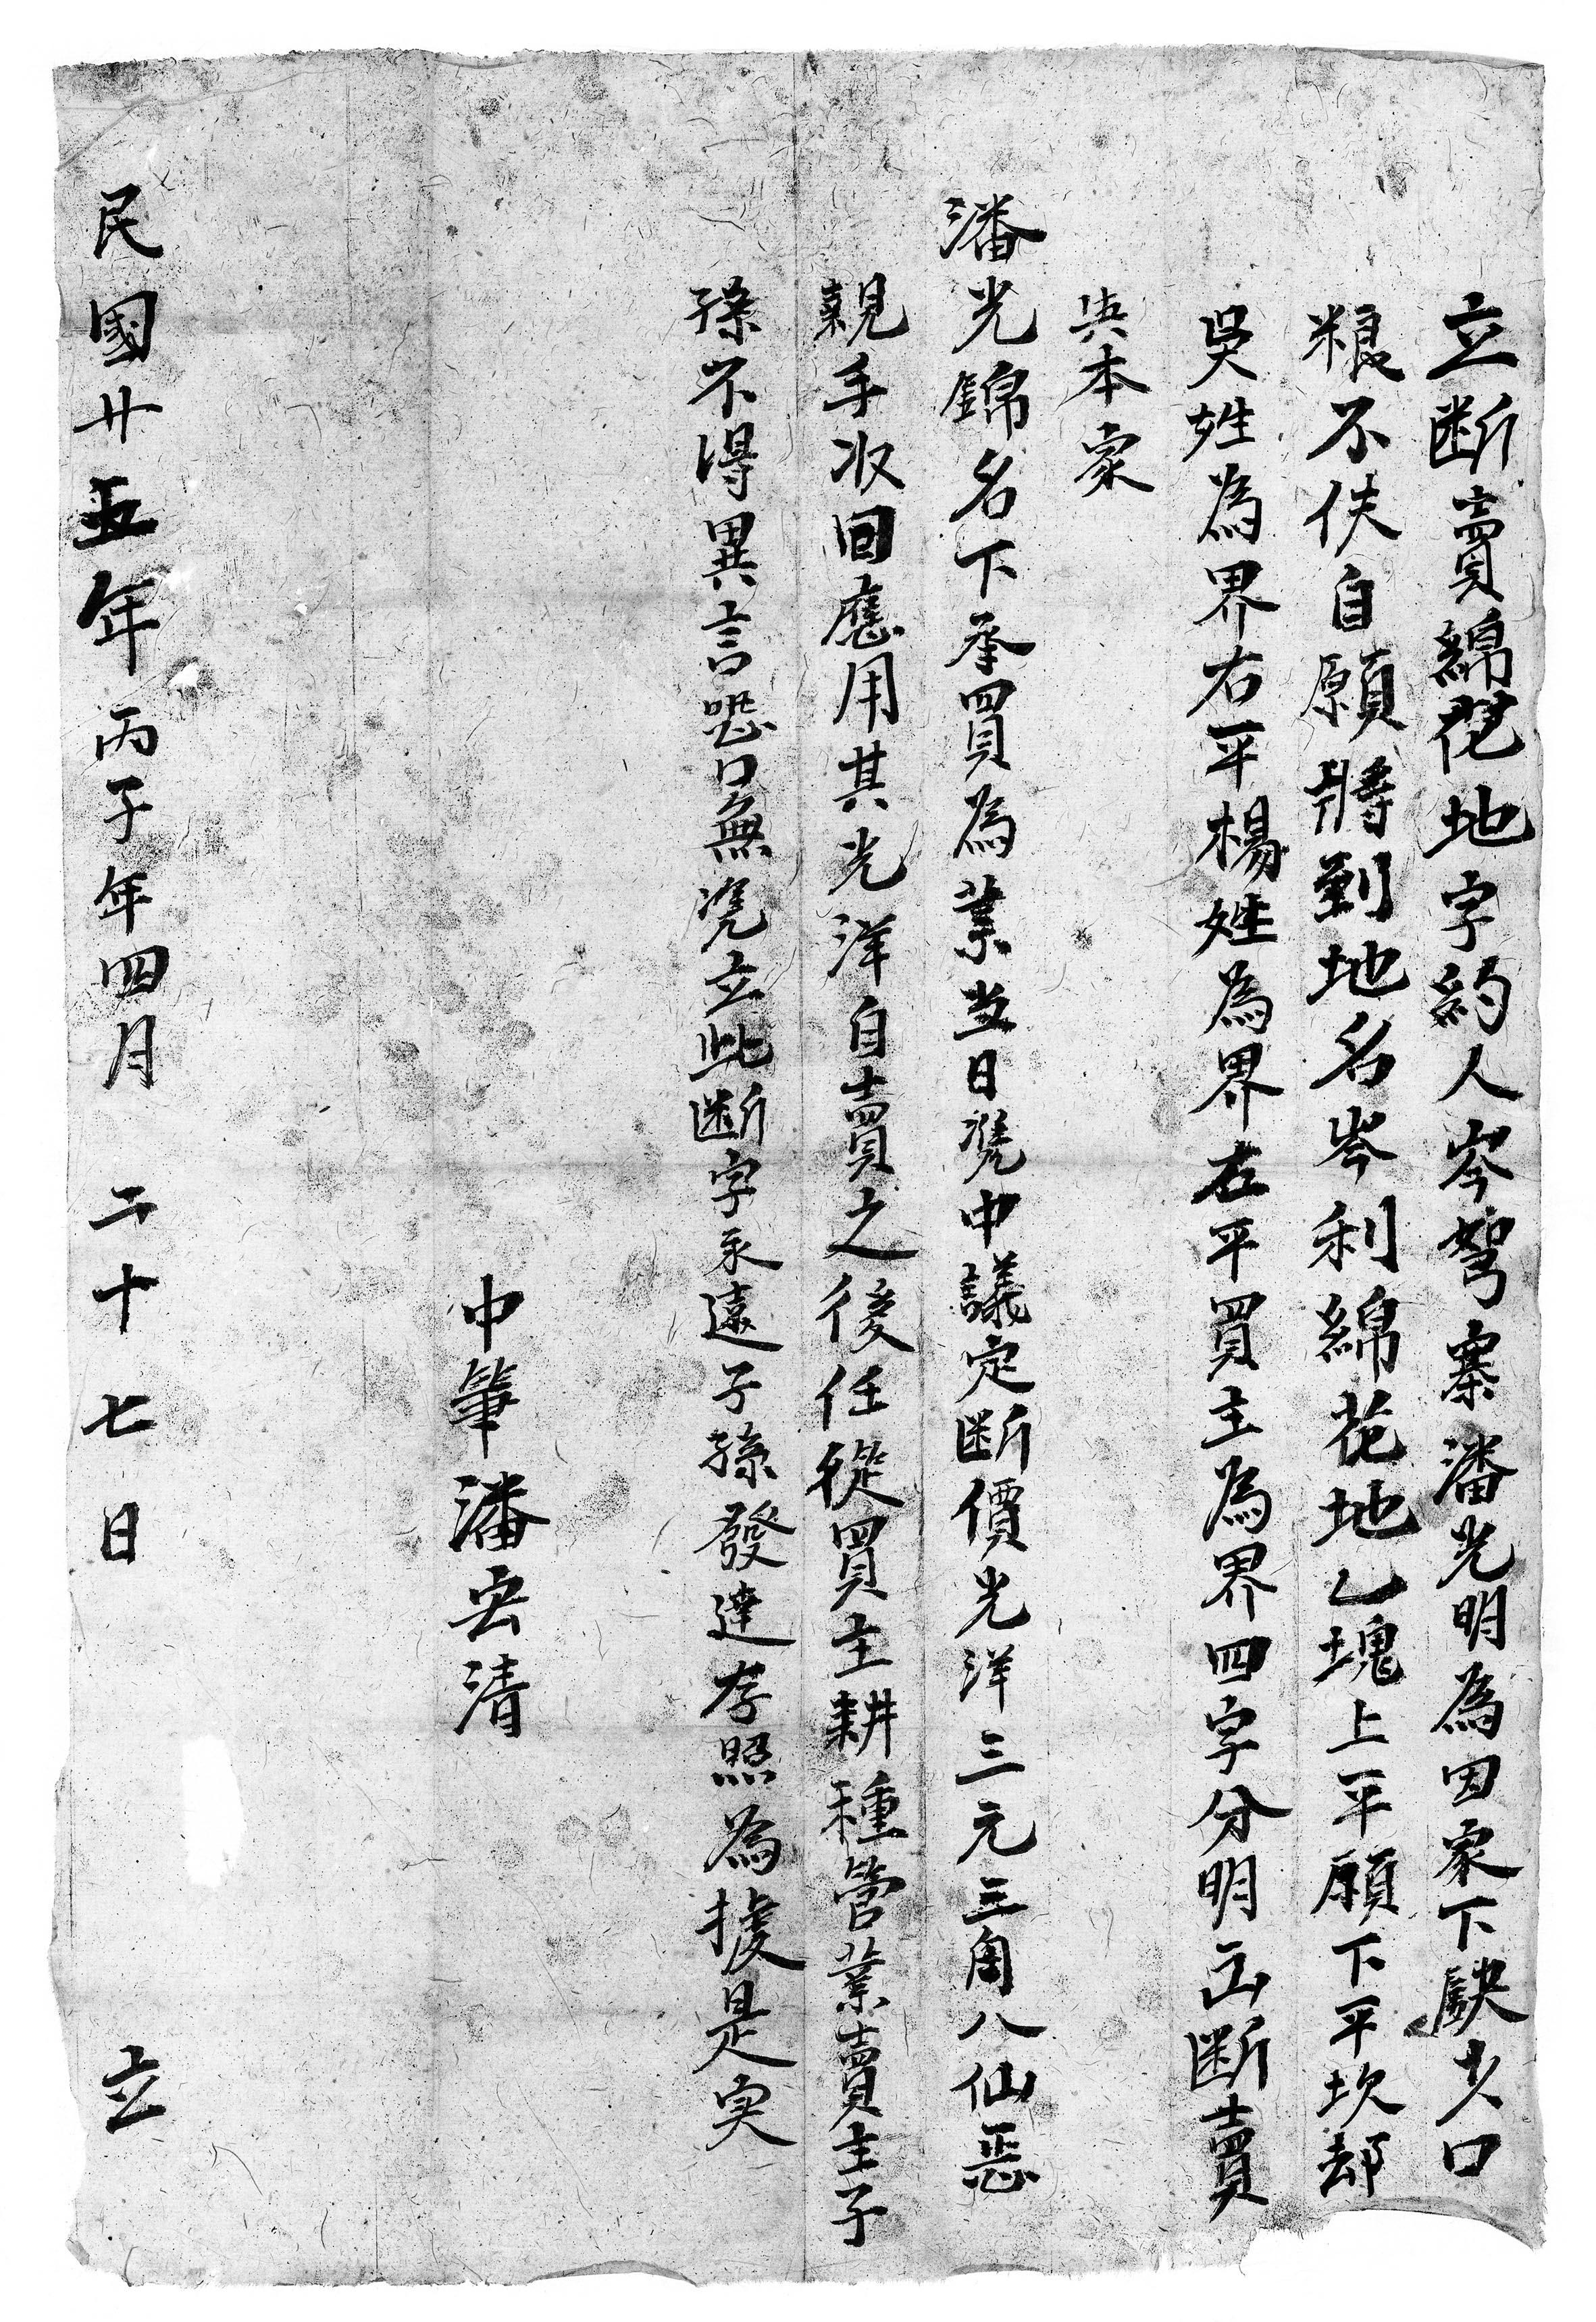 立断賣綿花地字約人岑努寨潘光明為因家下缺少口
粮不伕自願將到地名岑利綿花地乙塊上平願下平坎却
吳姓為界右平楊姓為界在平買主為界四字分明云断賣
與本家
潘光錦名下承買為業当日凴中議定断價光洋三元三角八仙恶
親手収回應用其光洋自賣之後任從買主耕種管業賣主子
孫不得異言恐口無凴立此断字永遠子孫發達存照為據是実
中筆潘宏清
民國廿五年丙子年四月二十七日立